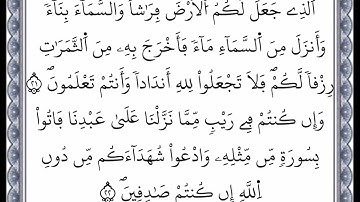 الذِے جَعَلَ لَكُمُ اُلَارْضَ فِرَٰشاٗ وَالسَّمَآءَ بِنَآءٗ
وَأَنزَلَ مِنَ اَلسَّمَآءِ مَآءٗ فَأَخْرَجَ بِهِۦ مِنَ اَلثَّمَرَٰتِ
رِزْقاٗ لَّكُمْۖ فَلَا تَجْعَلُواْ لِلهِ أَندَاداٗ وَأَنتُمْ تَعْلَمُونَۖ ٢١
وَإِن كُنتُمْ فِے رَيْبٖ مِّمَّا نَزَّلْنَا عَلَىٰ عَبْدِنَا فَاتُواْ
بِسُورَةٖ مِّن مِّثْلِهِۦ وَادْعُواْ شُهَدَآءَكُم مِّن دُونِ
اِللَّهِ إِن كُنتُمْ صَٰدِقِينَۖ ٢٢